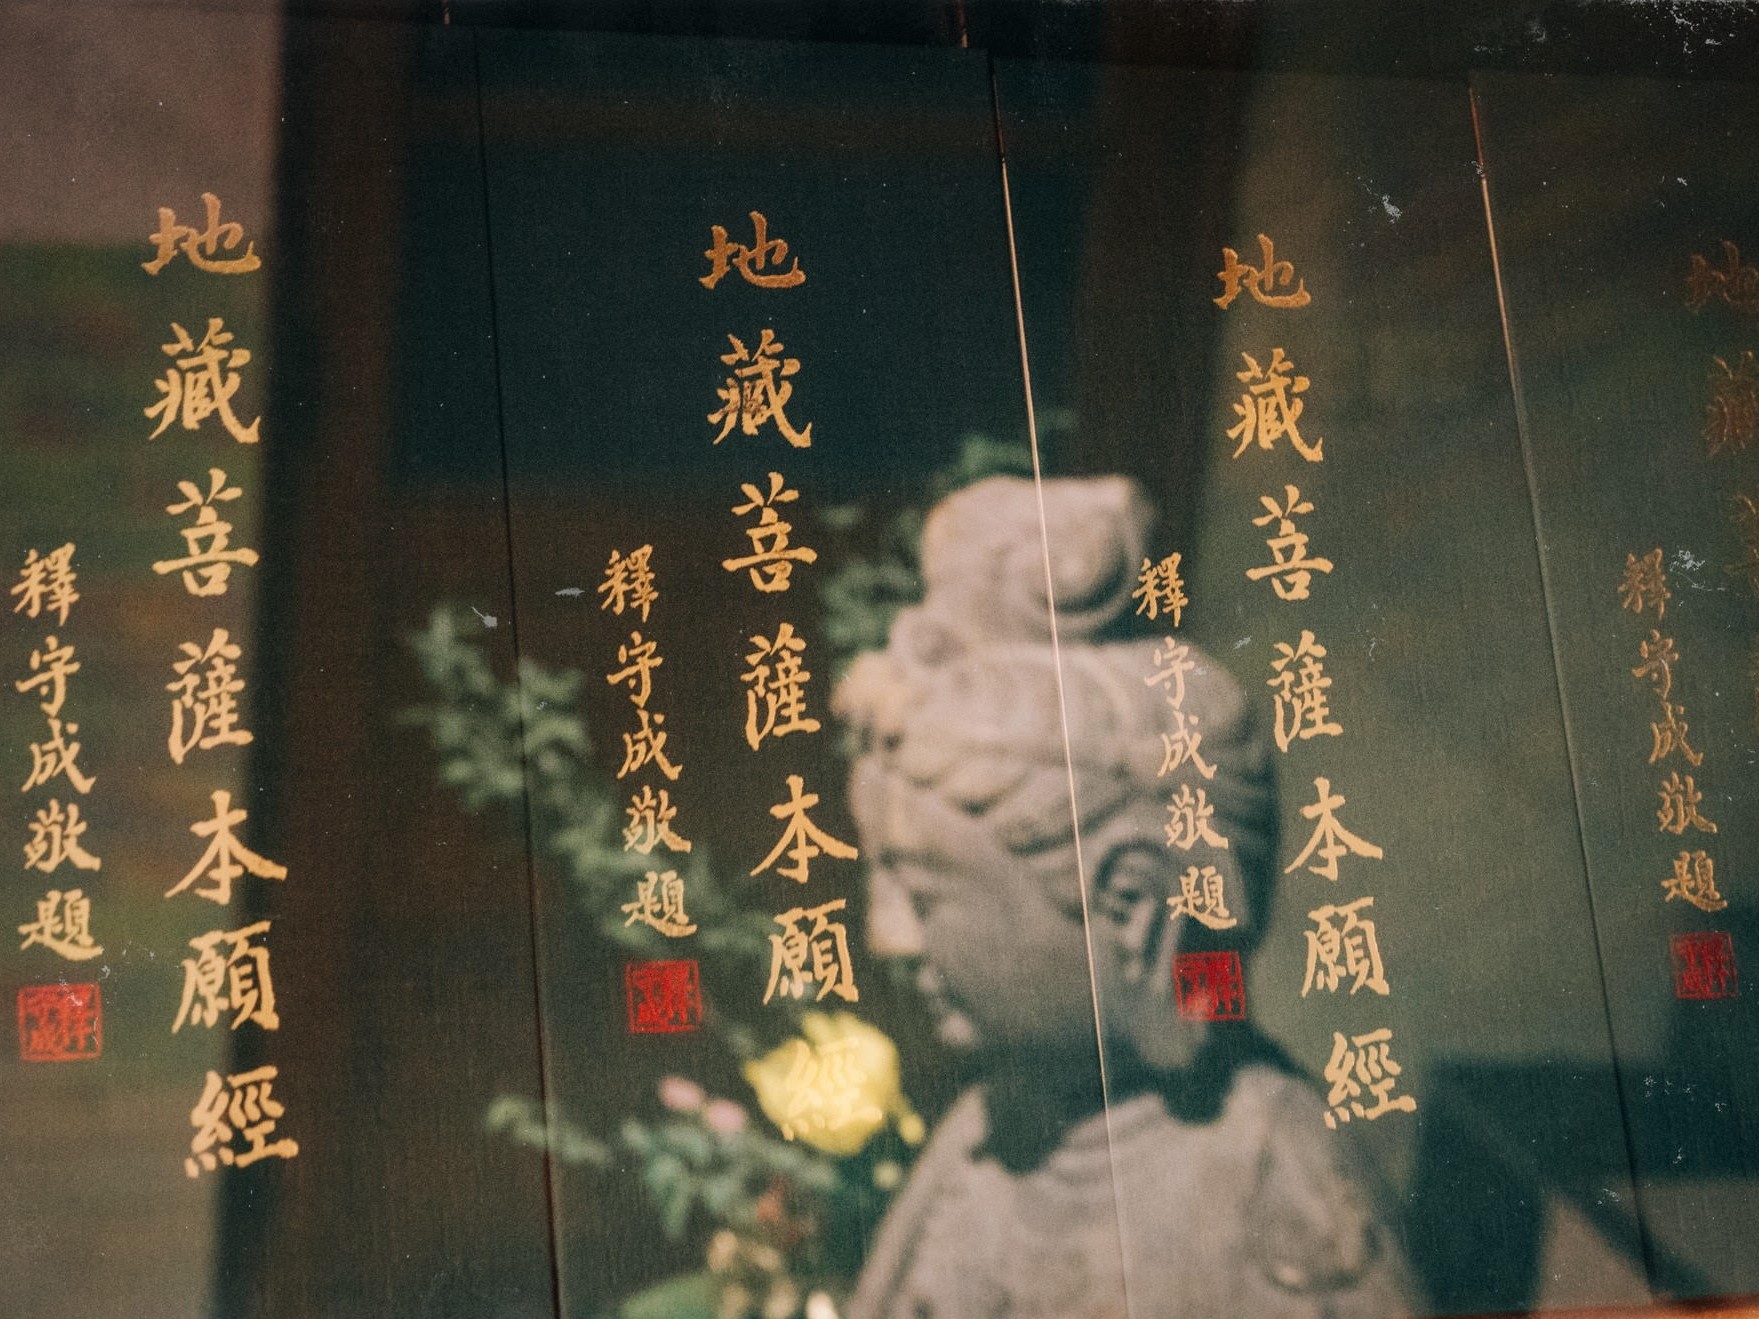 地藏
釋守成敬題
地藏菩薩本願經
釋守成敬題
地藏菩薩本願經
釋守成敬題
地藏菩薩本願經
釋守成敬題